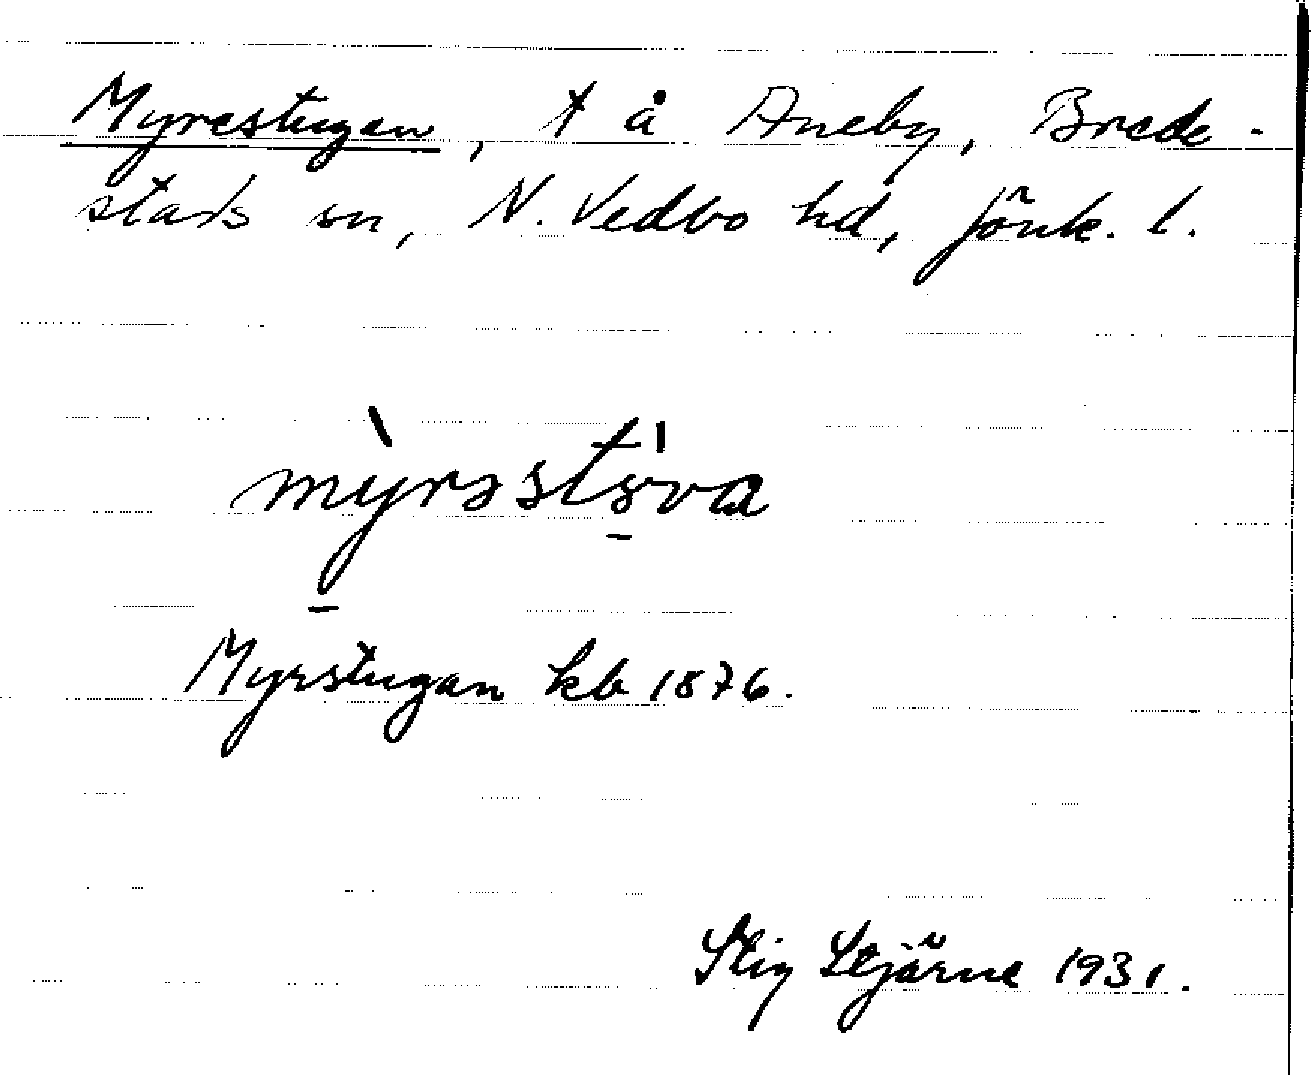 Myrestugan, t å Aneby, Brede-
stads sn, N. Vedbo hd, Jönk. l.
Myrstugan kb 1876.
Stig Stjärne 1931.